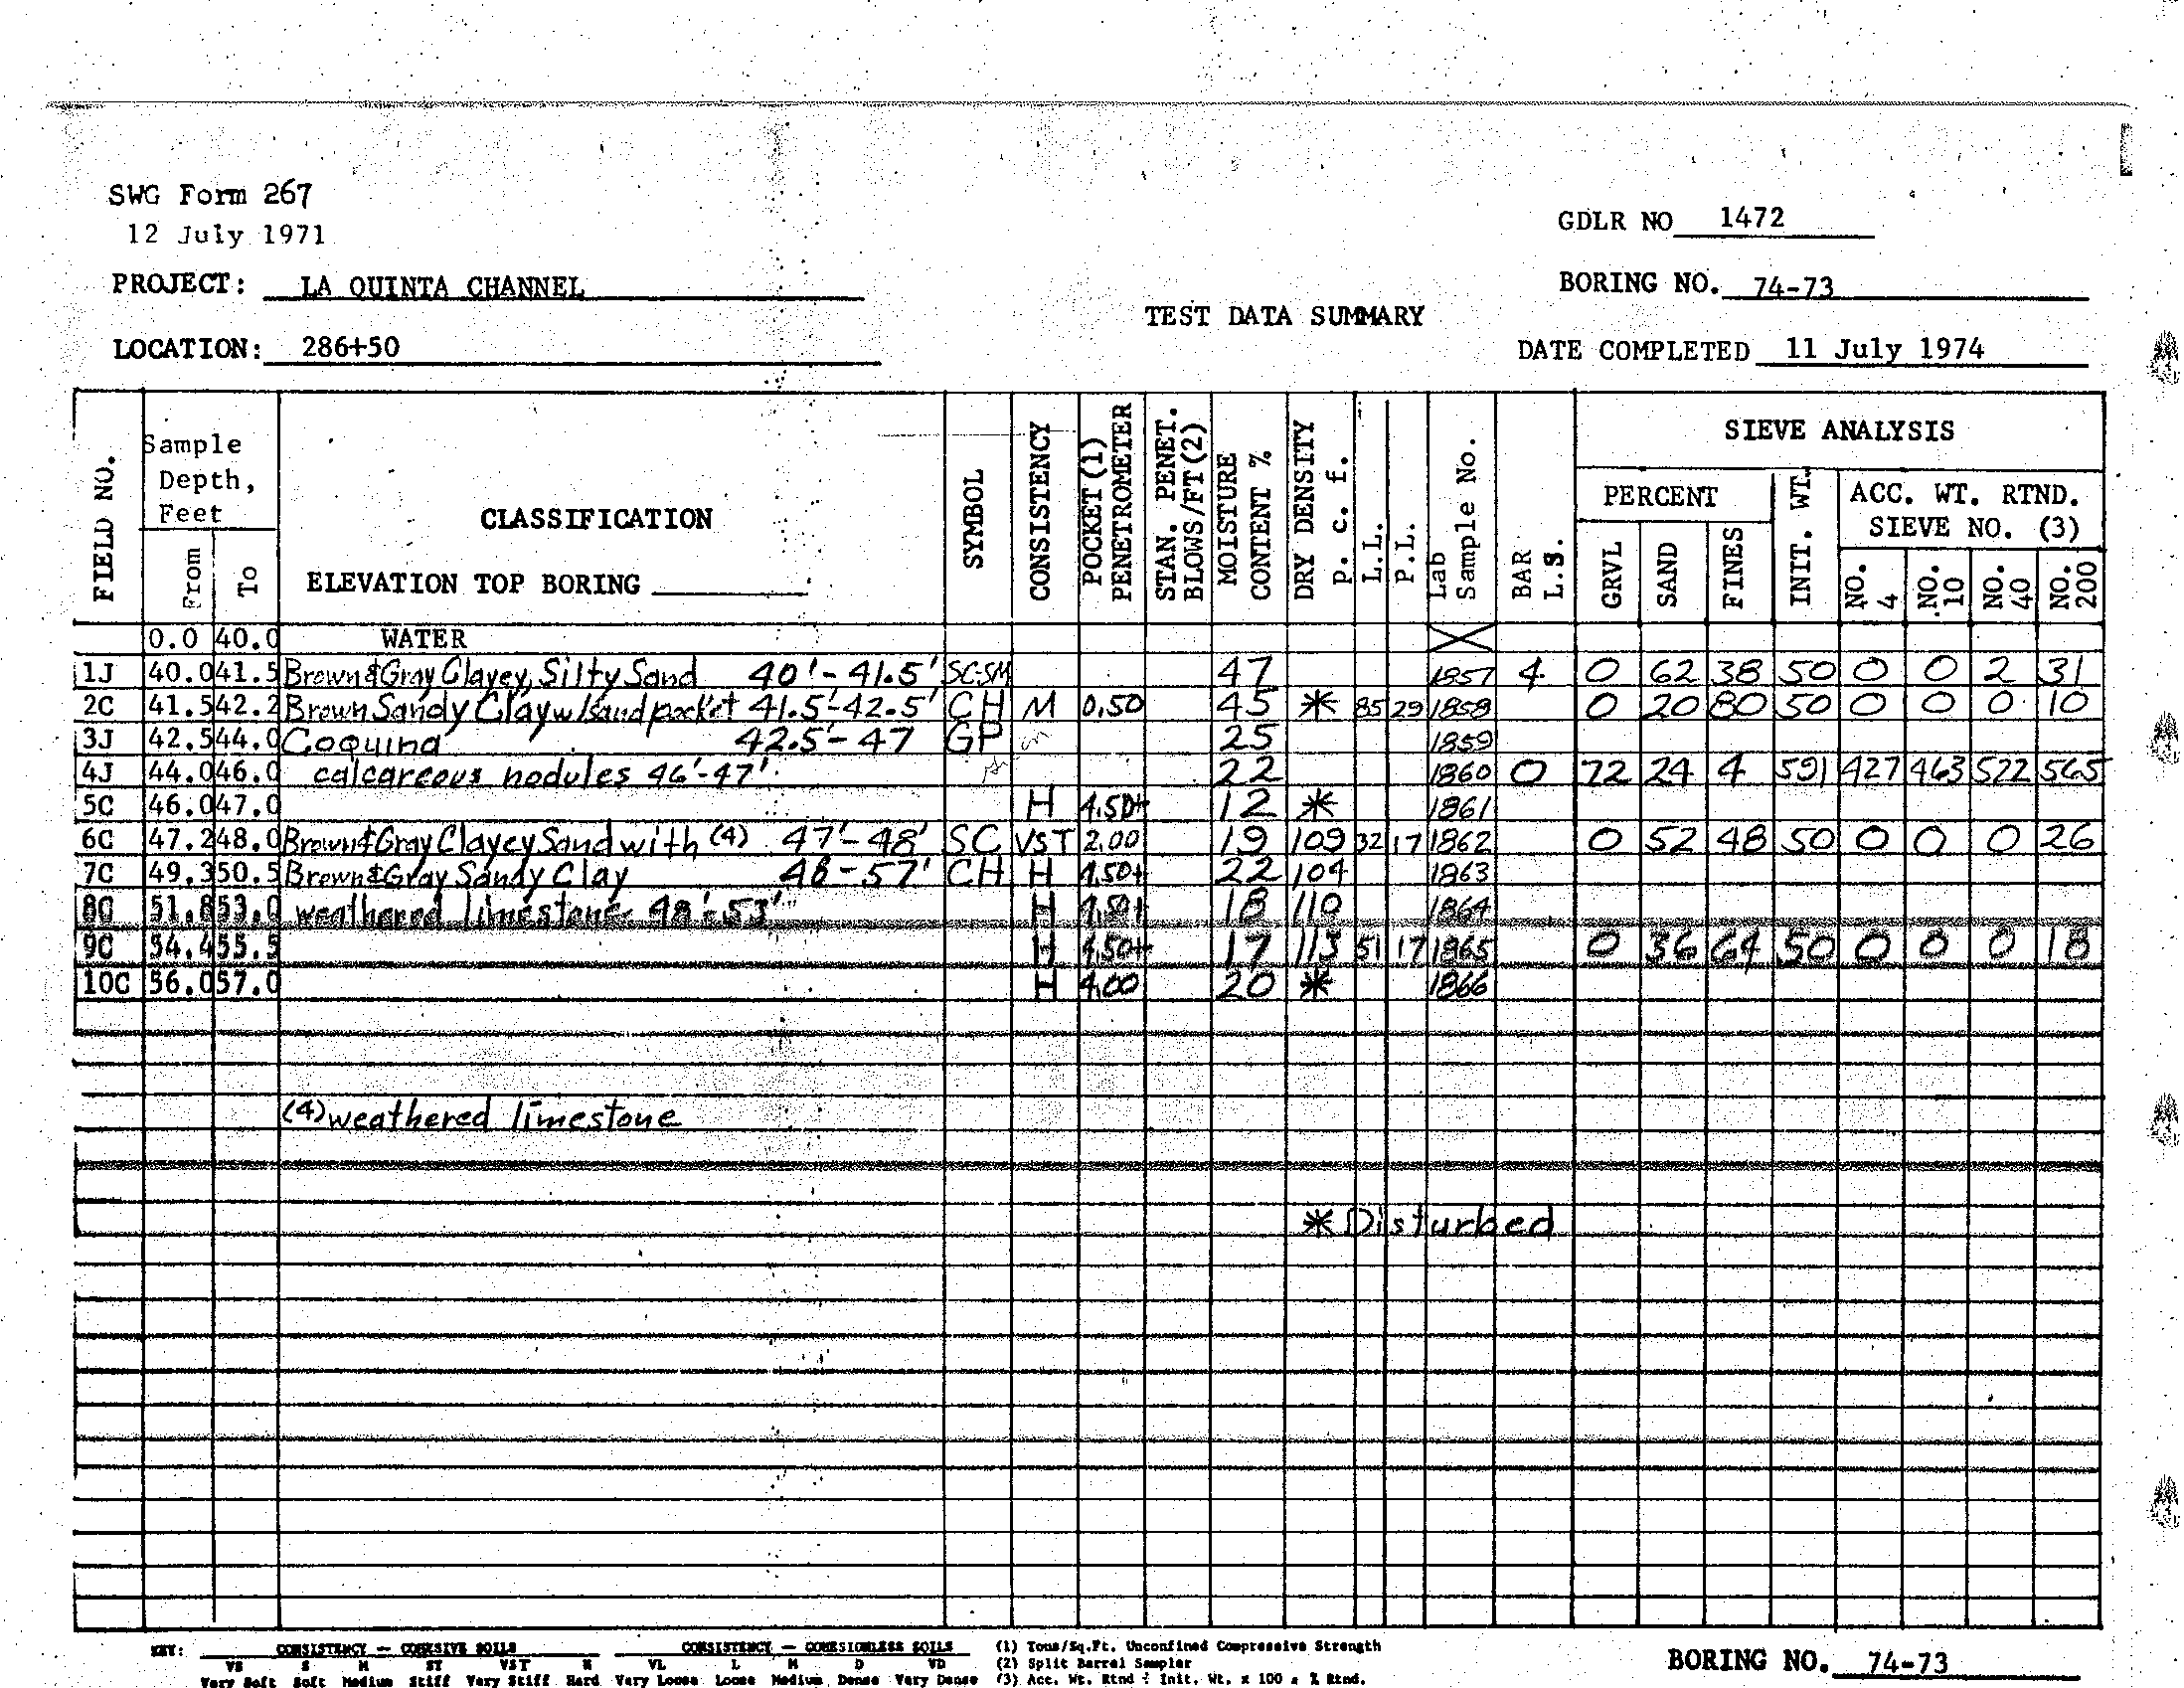 SWG Form 267
12 July 1971
GDLR NO 1472
PROJECT: LA QUINTA CHANNEL
BORING NO. 74-73
TEST DATA SUMMARY
LOCATION: 286+50
DATE COMPLETED 11 July 1974
FIELD NO.
Sample Depth, Feet
From
To
CLASSIFICATION
ELEVATION TOP BORING
SYMBOL
CONSISTENCY
POCKET (1) PENETROMETER
STAN. PENET. BLOWS/FT (2)
MOISTURE CONTENT %
DRY DENSITY p. c. f.
L.L.
P.L.
Lab Sample No.
BAR L.S.
SIEVE ANALYSIS
PERCENT
GRVL
SAND
FINES
INIT. WT.
ACC. WT. RTND. SIEVE NO. (3)
NO. 4
NO. 10
NO. 40
NO. 200
0.0 40.0 WATER
1J 40.0 41.5 Brown & Gray Clayey, Silty Sand 40'-41.5' SC-SM 47 1857 4 0 62 38 50 0 0 2 31
2C 41.5 42.2 Brown Sandy Clay w/sand pocket 41.5'-42.5' CH M 0.50 45 * 85 29 1858 0 20 80 50 0 0 0 10
3J 42.5 44.0 Coquina 42.5'-47 GP 25 1859
4J 44.0 46.0 calcareous nodules 46'-47' 22 1860 0 72 24 4 591 427 463 522 565
5C 46.0 47.0 H 4.50+ 12 * 1861
6C 47.2 48.0 Brown & Gray Clayey Sand with (4) 47'-48' SC VST 2.00 19 109 32 17 1862 0 52 48 50 0 0 0 26
7C 49.3 50.5 Brown & Gray Sandy Clay 48-57' CH H 4.50+ 22 104 1863
8C 51.8 53.0 weathered limestone 48'-53' H 4.50+ 18 110 1864
9C 54.4 55.5 H 4.50+ 17 113 51 17 1865 0 36 64 50 0 0 0 18
10C 56.0 57.0 H 4.00 20 * 1866
(4) weathered limestone
* Disturbed
KEY: CONSISTENCY — COHESIVE SOILS CONSISTENCY — COHESIONLESS SOILS (1) Tons/Sq.Ft. Unconfined Compressive Strength
VS S M ST VST H VL L M D VD (2) Split Barrel Sampler
Very Soft Soft Medium Stiff Very Stiff Hard Very Loose Loose Medium Dense Very Dense (3) Acc. Wt. Rtnd ÷ Init. Wt. x 100 = % Rtnd.
BORING NO. 74-73